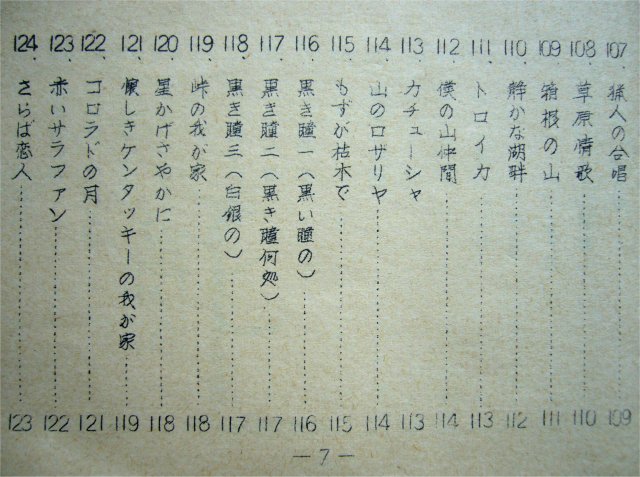 107. 猟人の合唱……109
108. 草原情歌……110
109. 箱根の山……111
110. 静かな湖畔……112
111. トロイカ……113
112. 僕の山仲間……114
113. カチューシャ……113
114. 山のロザリヤ……114
115. もずが枯木で……115
116. 黒き瞳一(黒い瞳の)……116
117. 黒き瞳二(黒き瞳何処)……117
118. 黒き瞳三(白銀の)……117
119. 峠の我が家……118
120. 星かげさやかに……118
121. 懐しきケンタッキーの我が家……119
122. コロラドの月……121
123. 赤いサラファン……122
124. さらば恋人……123
—7—